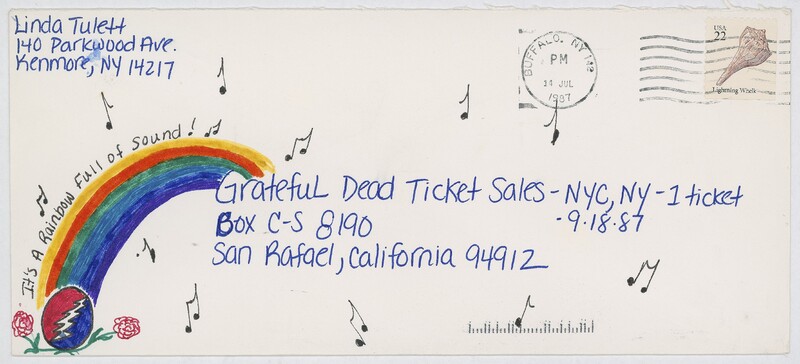 Linda Tulett
140 Parkwood Ave.
Kenmore, NY 14217
BUFFALO, NY 142
PM
14 JUL
1987
USA
22
Lightning Whelk
It's A Rainbow Full of Sound!
Grateful Dead Ticket Sales - NYC, NY - 1 ticket
- 9.18.87
Box C-S 8190
San Rafael, California 94912